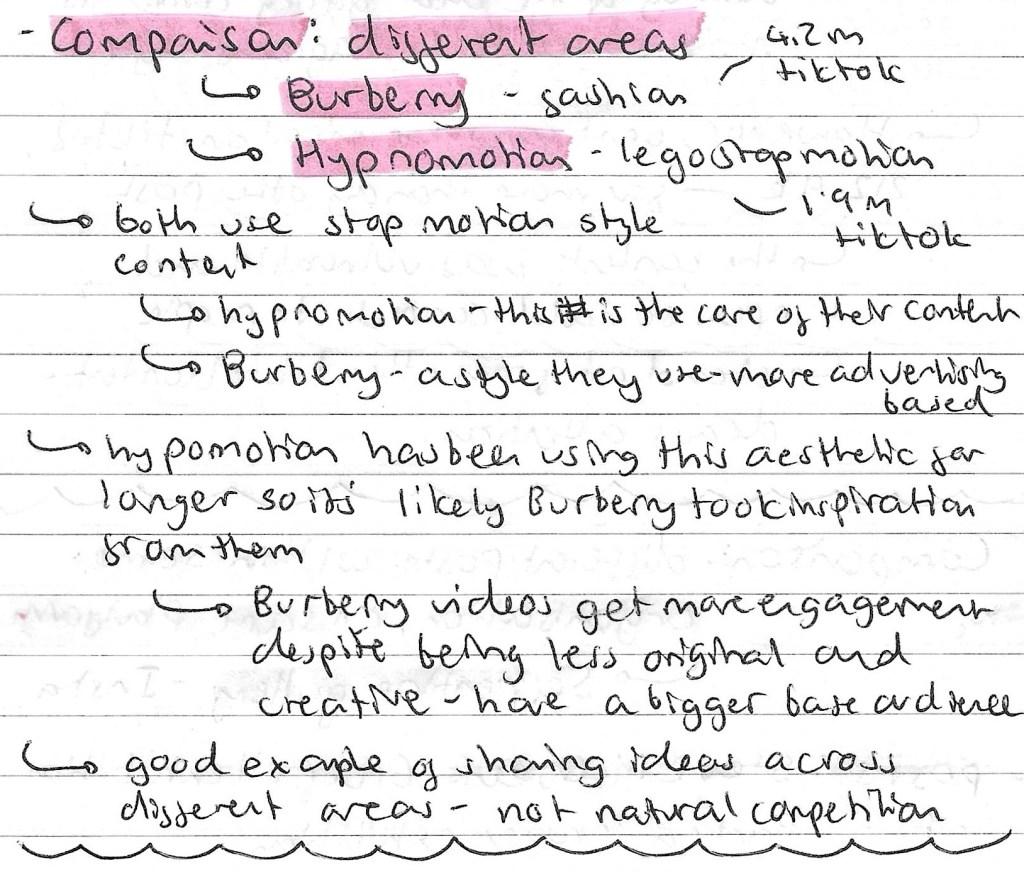 - Comparison: different areas
4.2m
tiktok
↳ Burberry - fashion
↳ Hypnomotion - lego stop motion
1.9m
tiktok
↳ both use stop motion style
content
↳ hypnomotion - this is the core of their content
↳ Burberry - a style they use - more advertising
based
↳ hypomotion has been using this aesthetic for
longer so its' likely Burberry took inspiration
from them
↳ Burberry videos get more engagement
despite being less original and
creative - have a bigger base audience
↳ good example of sharing ideas across
different areas - not natural competition